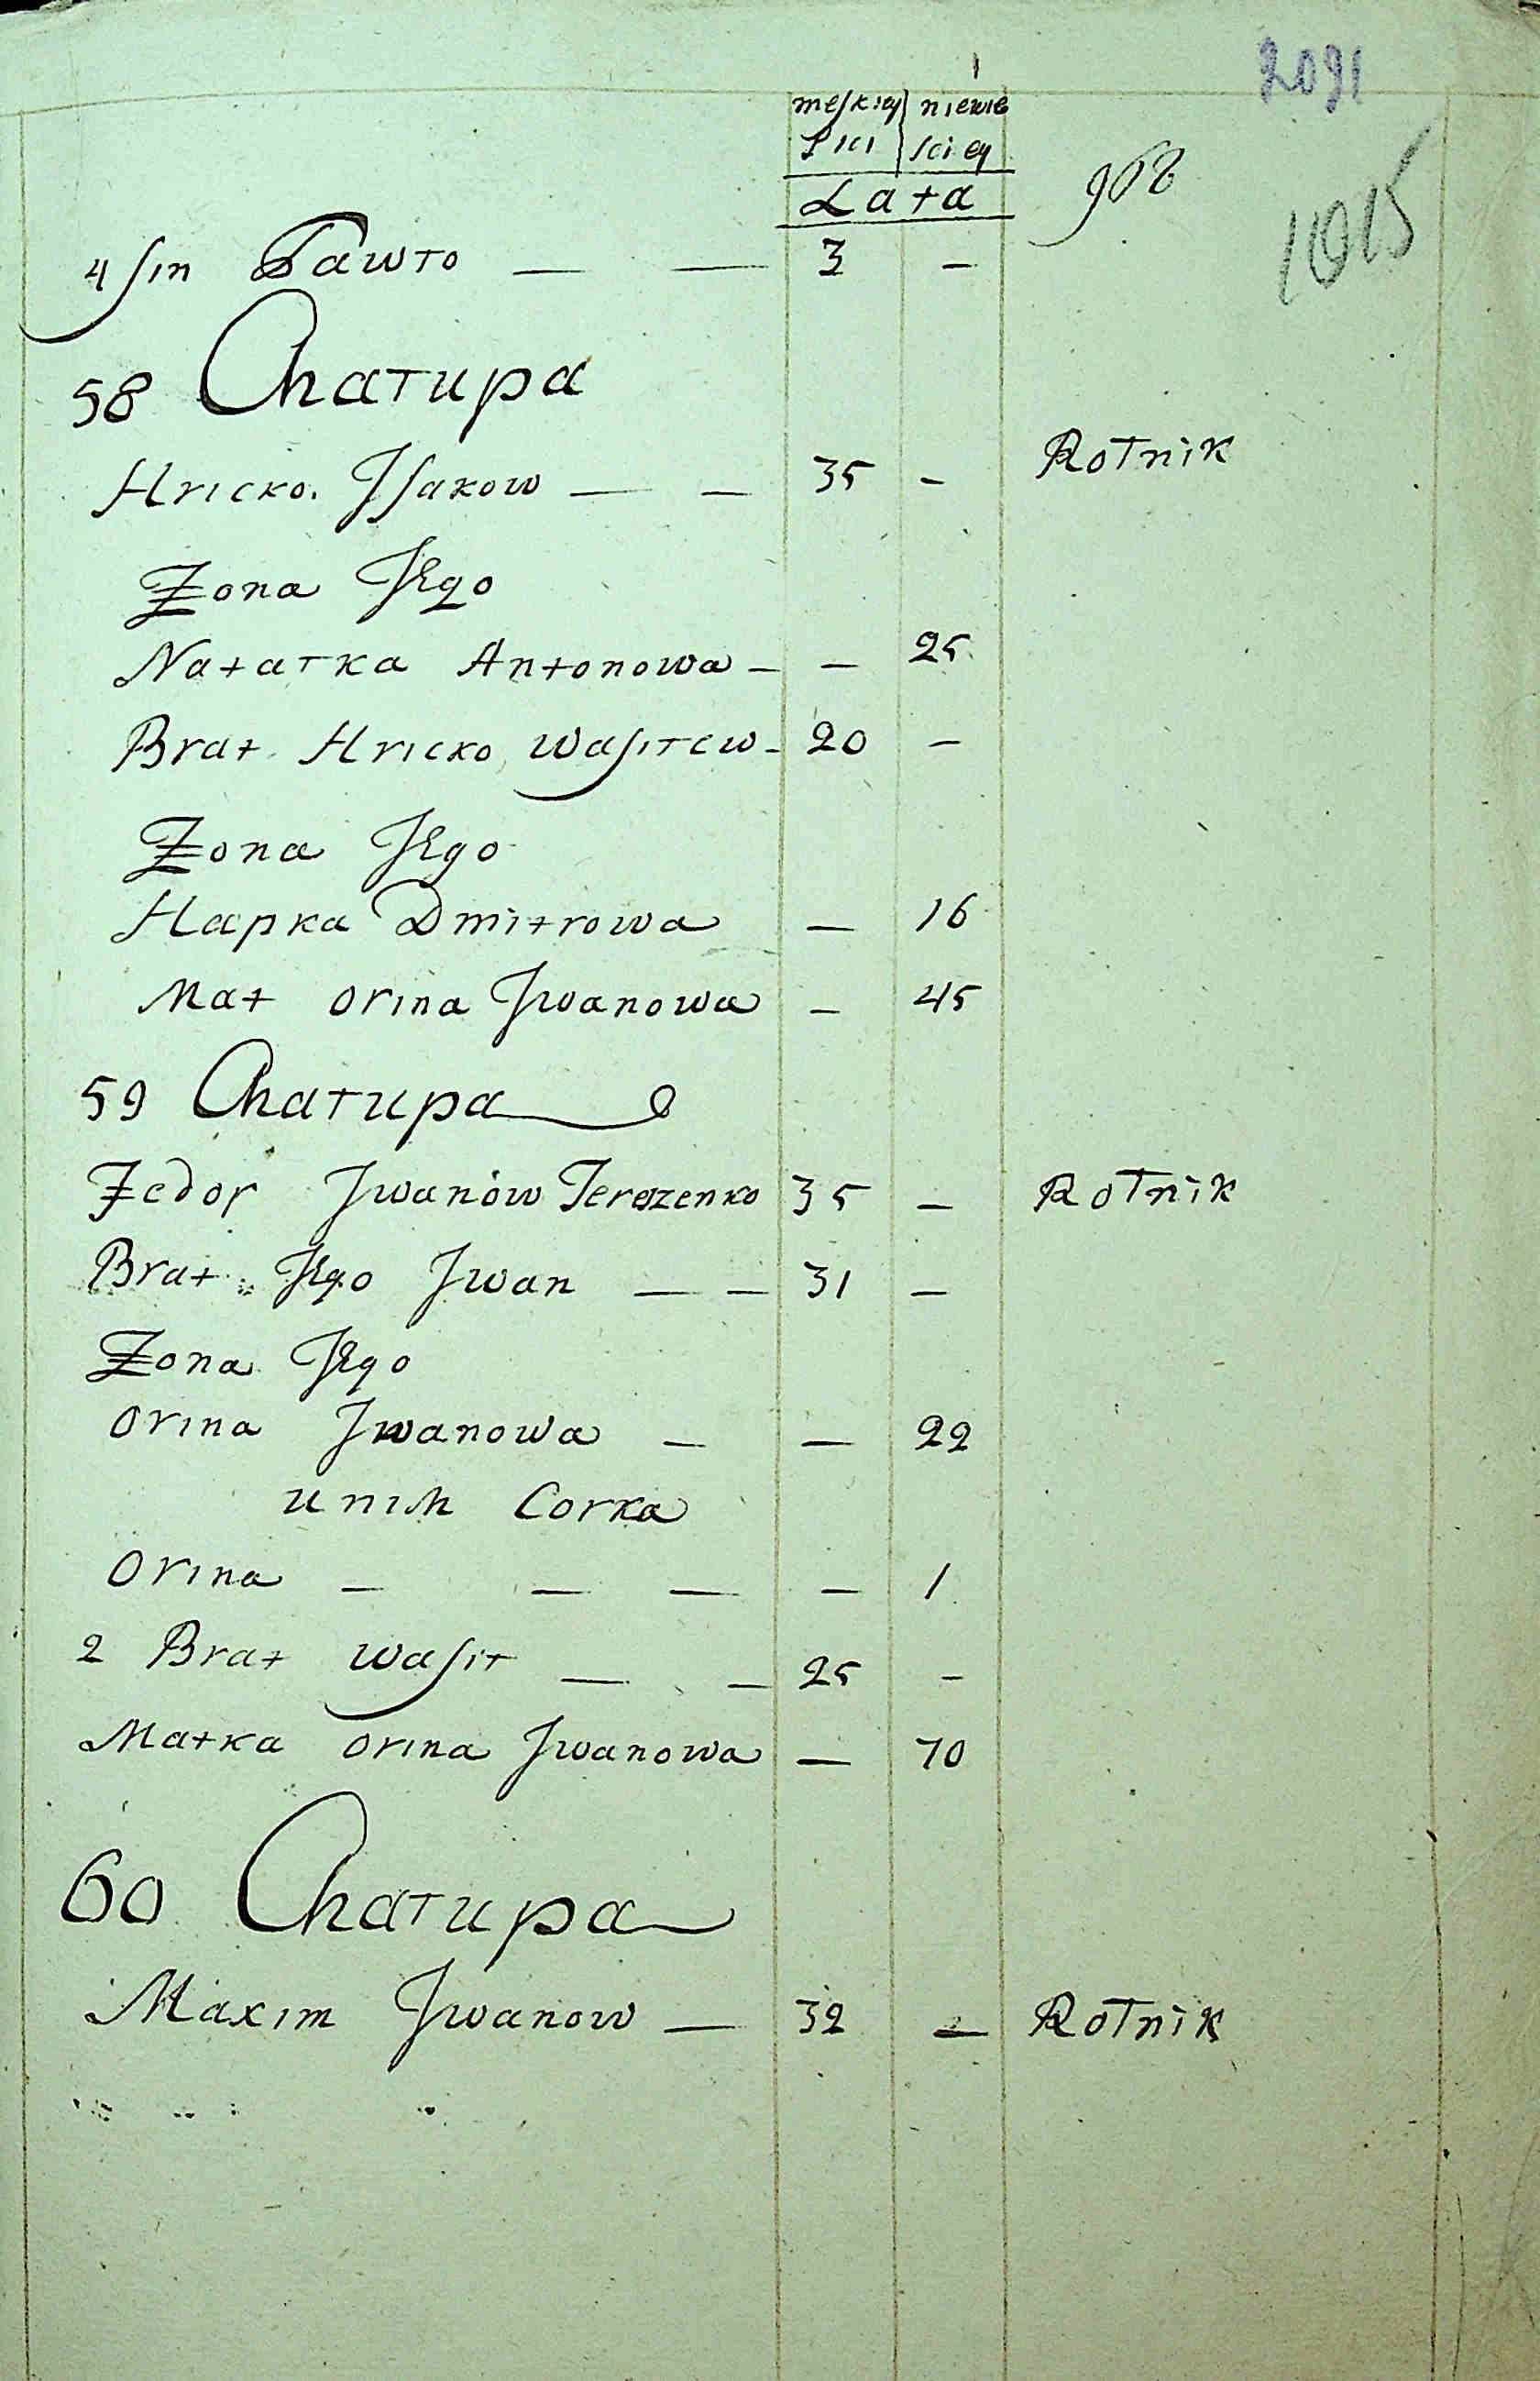 2091
męskiey niewie
Płci sciey
Lata
968
1015
4 sin Pawło — — 3 -
58 Chałupa
Hricko Isakow — — 35 - Rolnik
Żona Jego
Natałka Antonowa - — 25
Brat Hricko Wasilew - 20 —
Żona Jego
Hapka Dmitrowa — 16
Mat Orina Iwanowa — 45
59 Chałupa
Fedor Iwanów Tereszenko 35 — Rolnik
Brat Jego Iwan — — 31 —
Żona Jego
Orina Iwanowa — — 22
u nich Corka
Orina — — — — 1
2 Brat Wasil — — 25 -
Matka Orina Iwanowa — 70
60 Chałupa
Maxim Iwanow — 32 — Rolnik